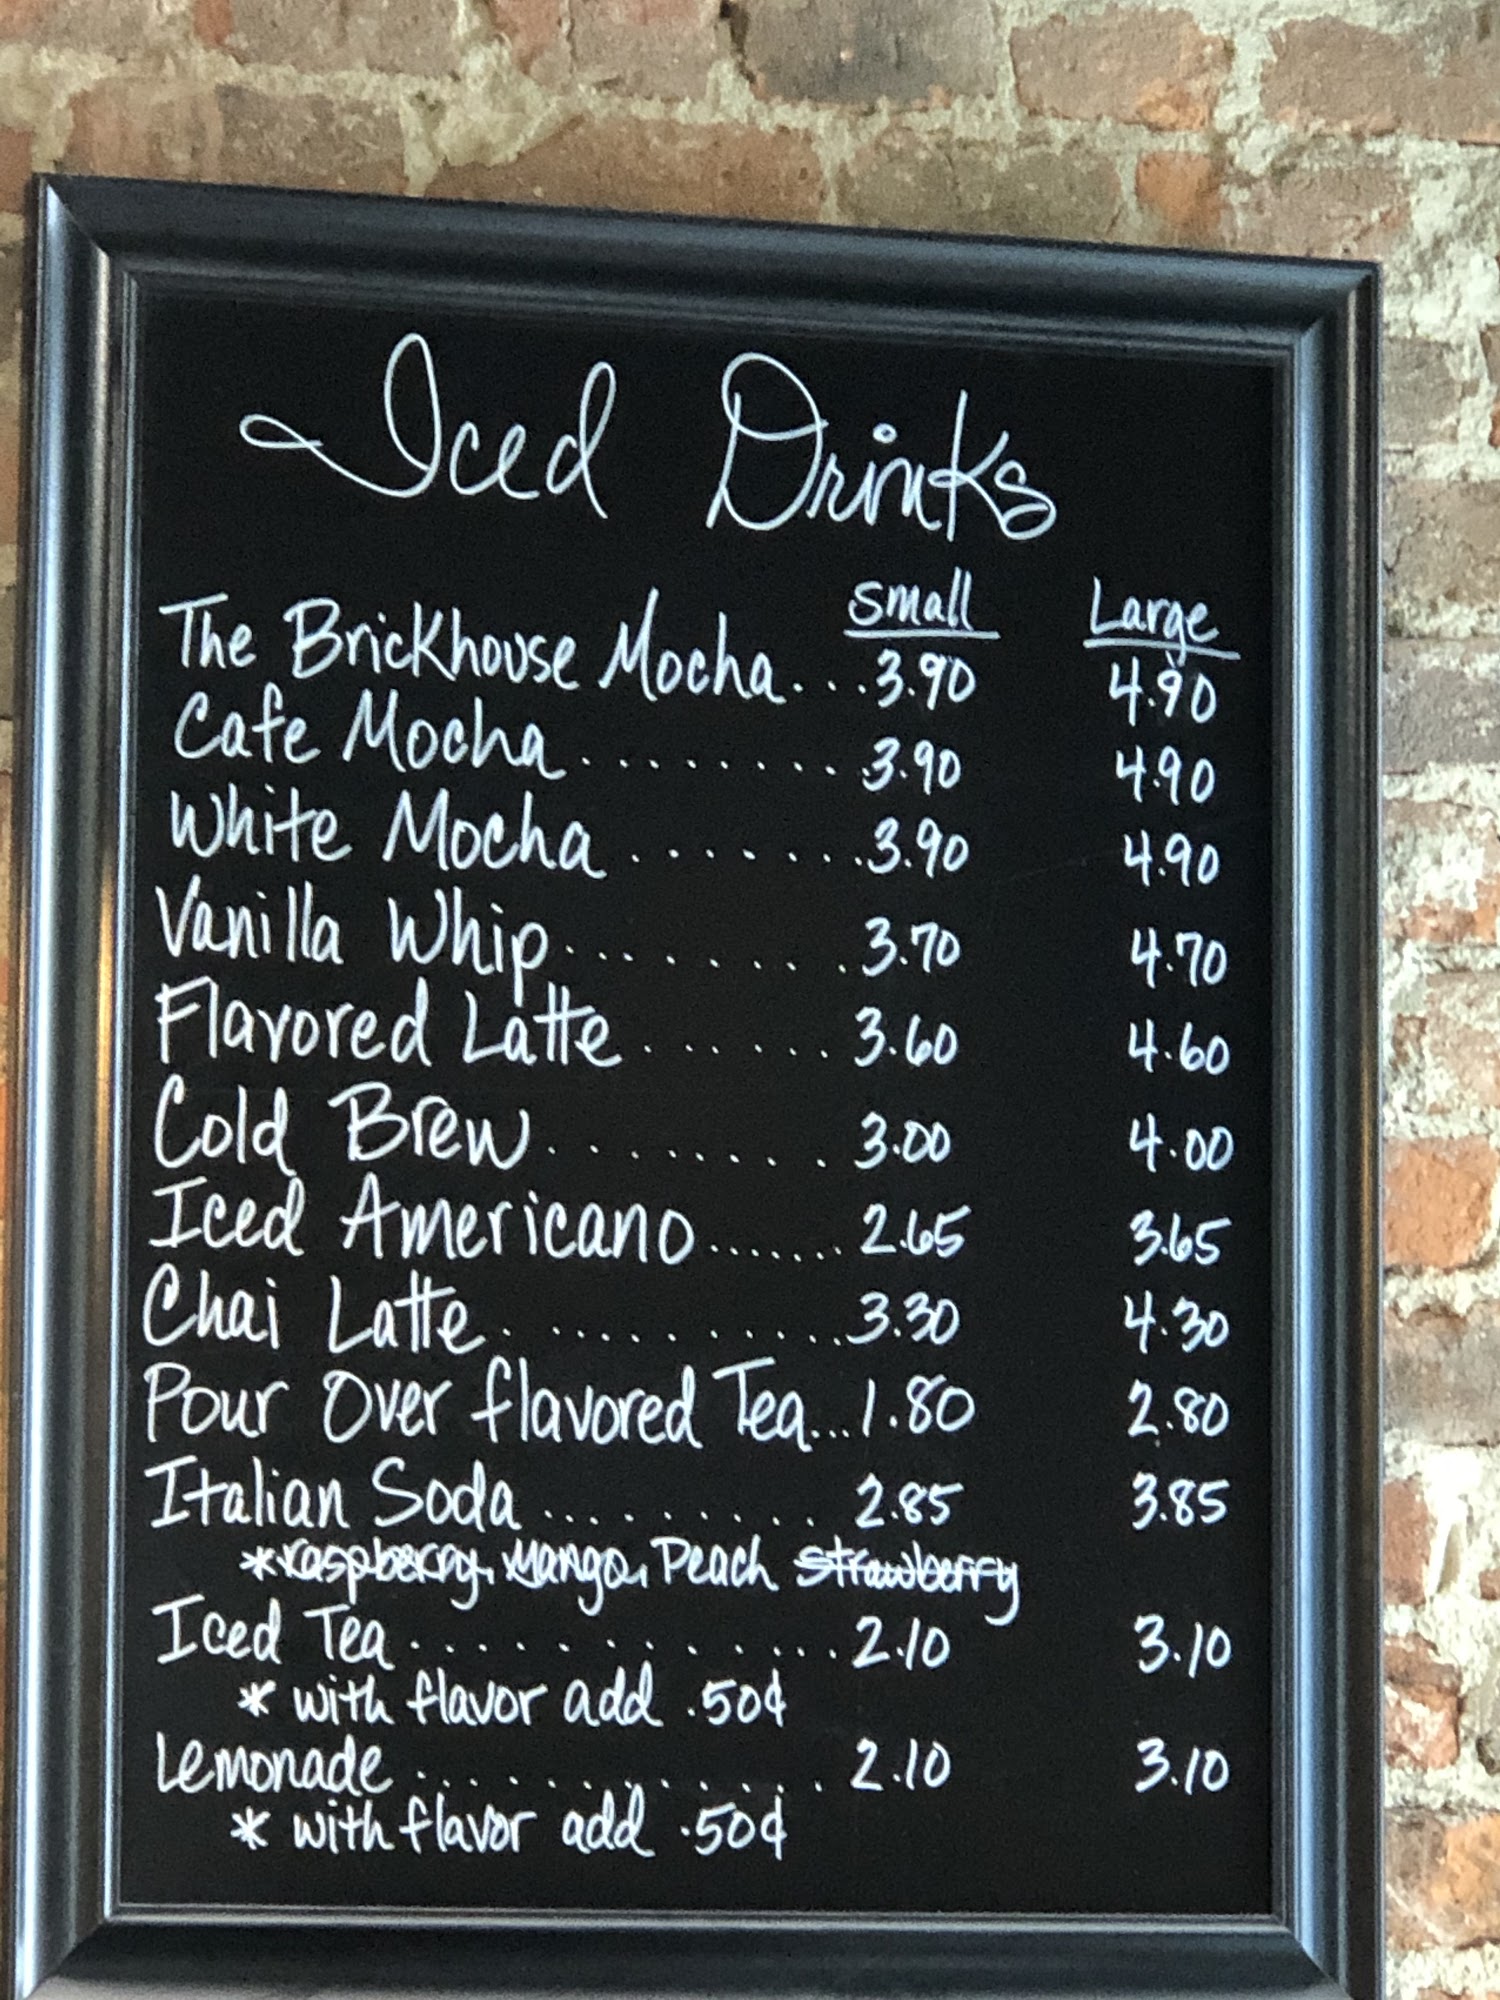 Iced Drinks
small Large
The Brickhouse Mocha....3.90 4.90
Cafe Mocha.........3.90 4.90
White Mocha........3.90 4.90
Vanilla Whip.........3.70 4.70
Flavored Latte.......3.60 4.60
Cold Brew........3.00 4.00
Iced Americano.......2.65 3.65
Chai Latte...........3.30 4.30
Pour Over flavored Tea...1.80 2.80
Italian Soda..........2.85 3.85
*raspberry, Mango, Peach strawberry
Iced Tea.............2.10 3.10
* with flavor add .50¢
Lemonade.............2.10 3.10
* with flavor add .50¢